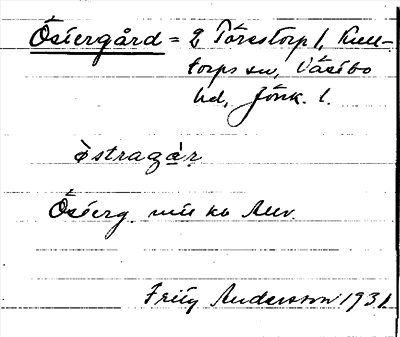 Östergård = 2 Törestorp 1, Kull-
torps sn, Västbo
hd, Jönk. l.
östragár
Österg. 
Fritz Andersson 1931